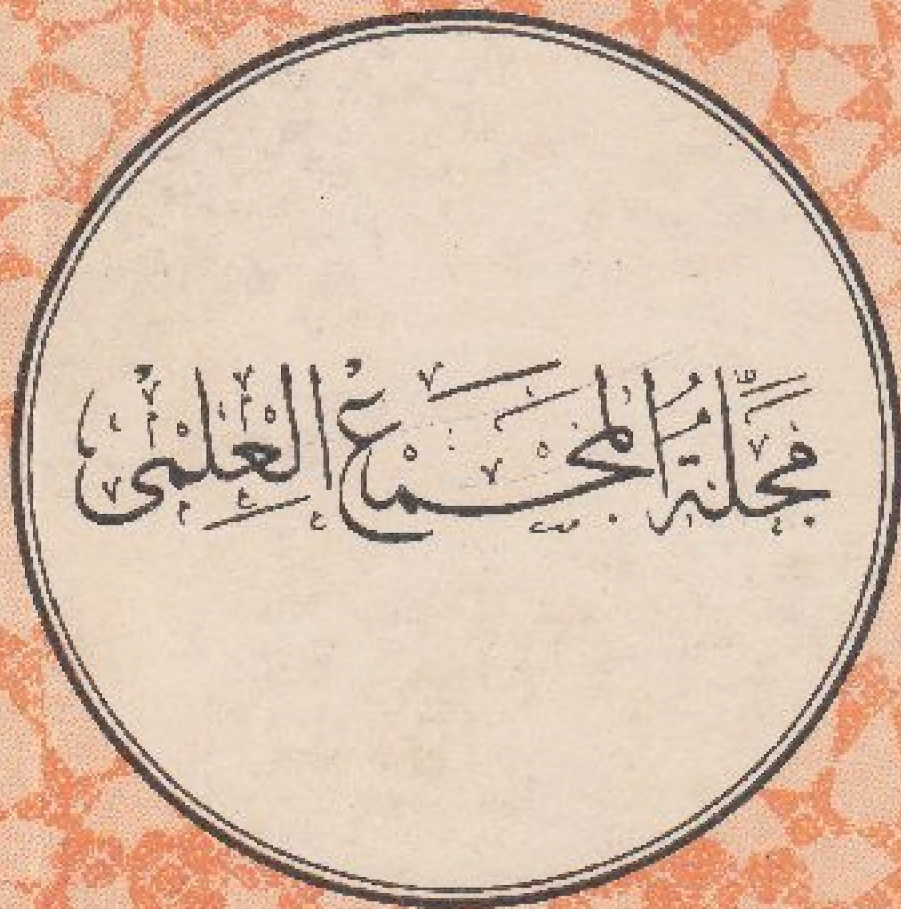 مَجَلَّةُ المَجْمَعِ العِلْمِي